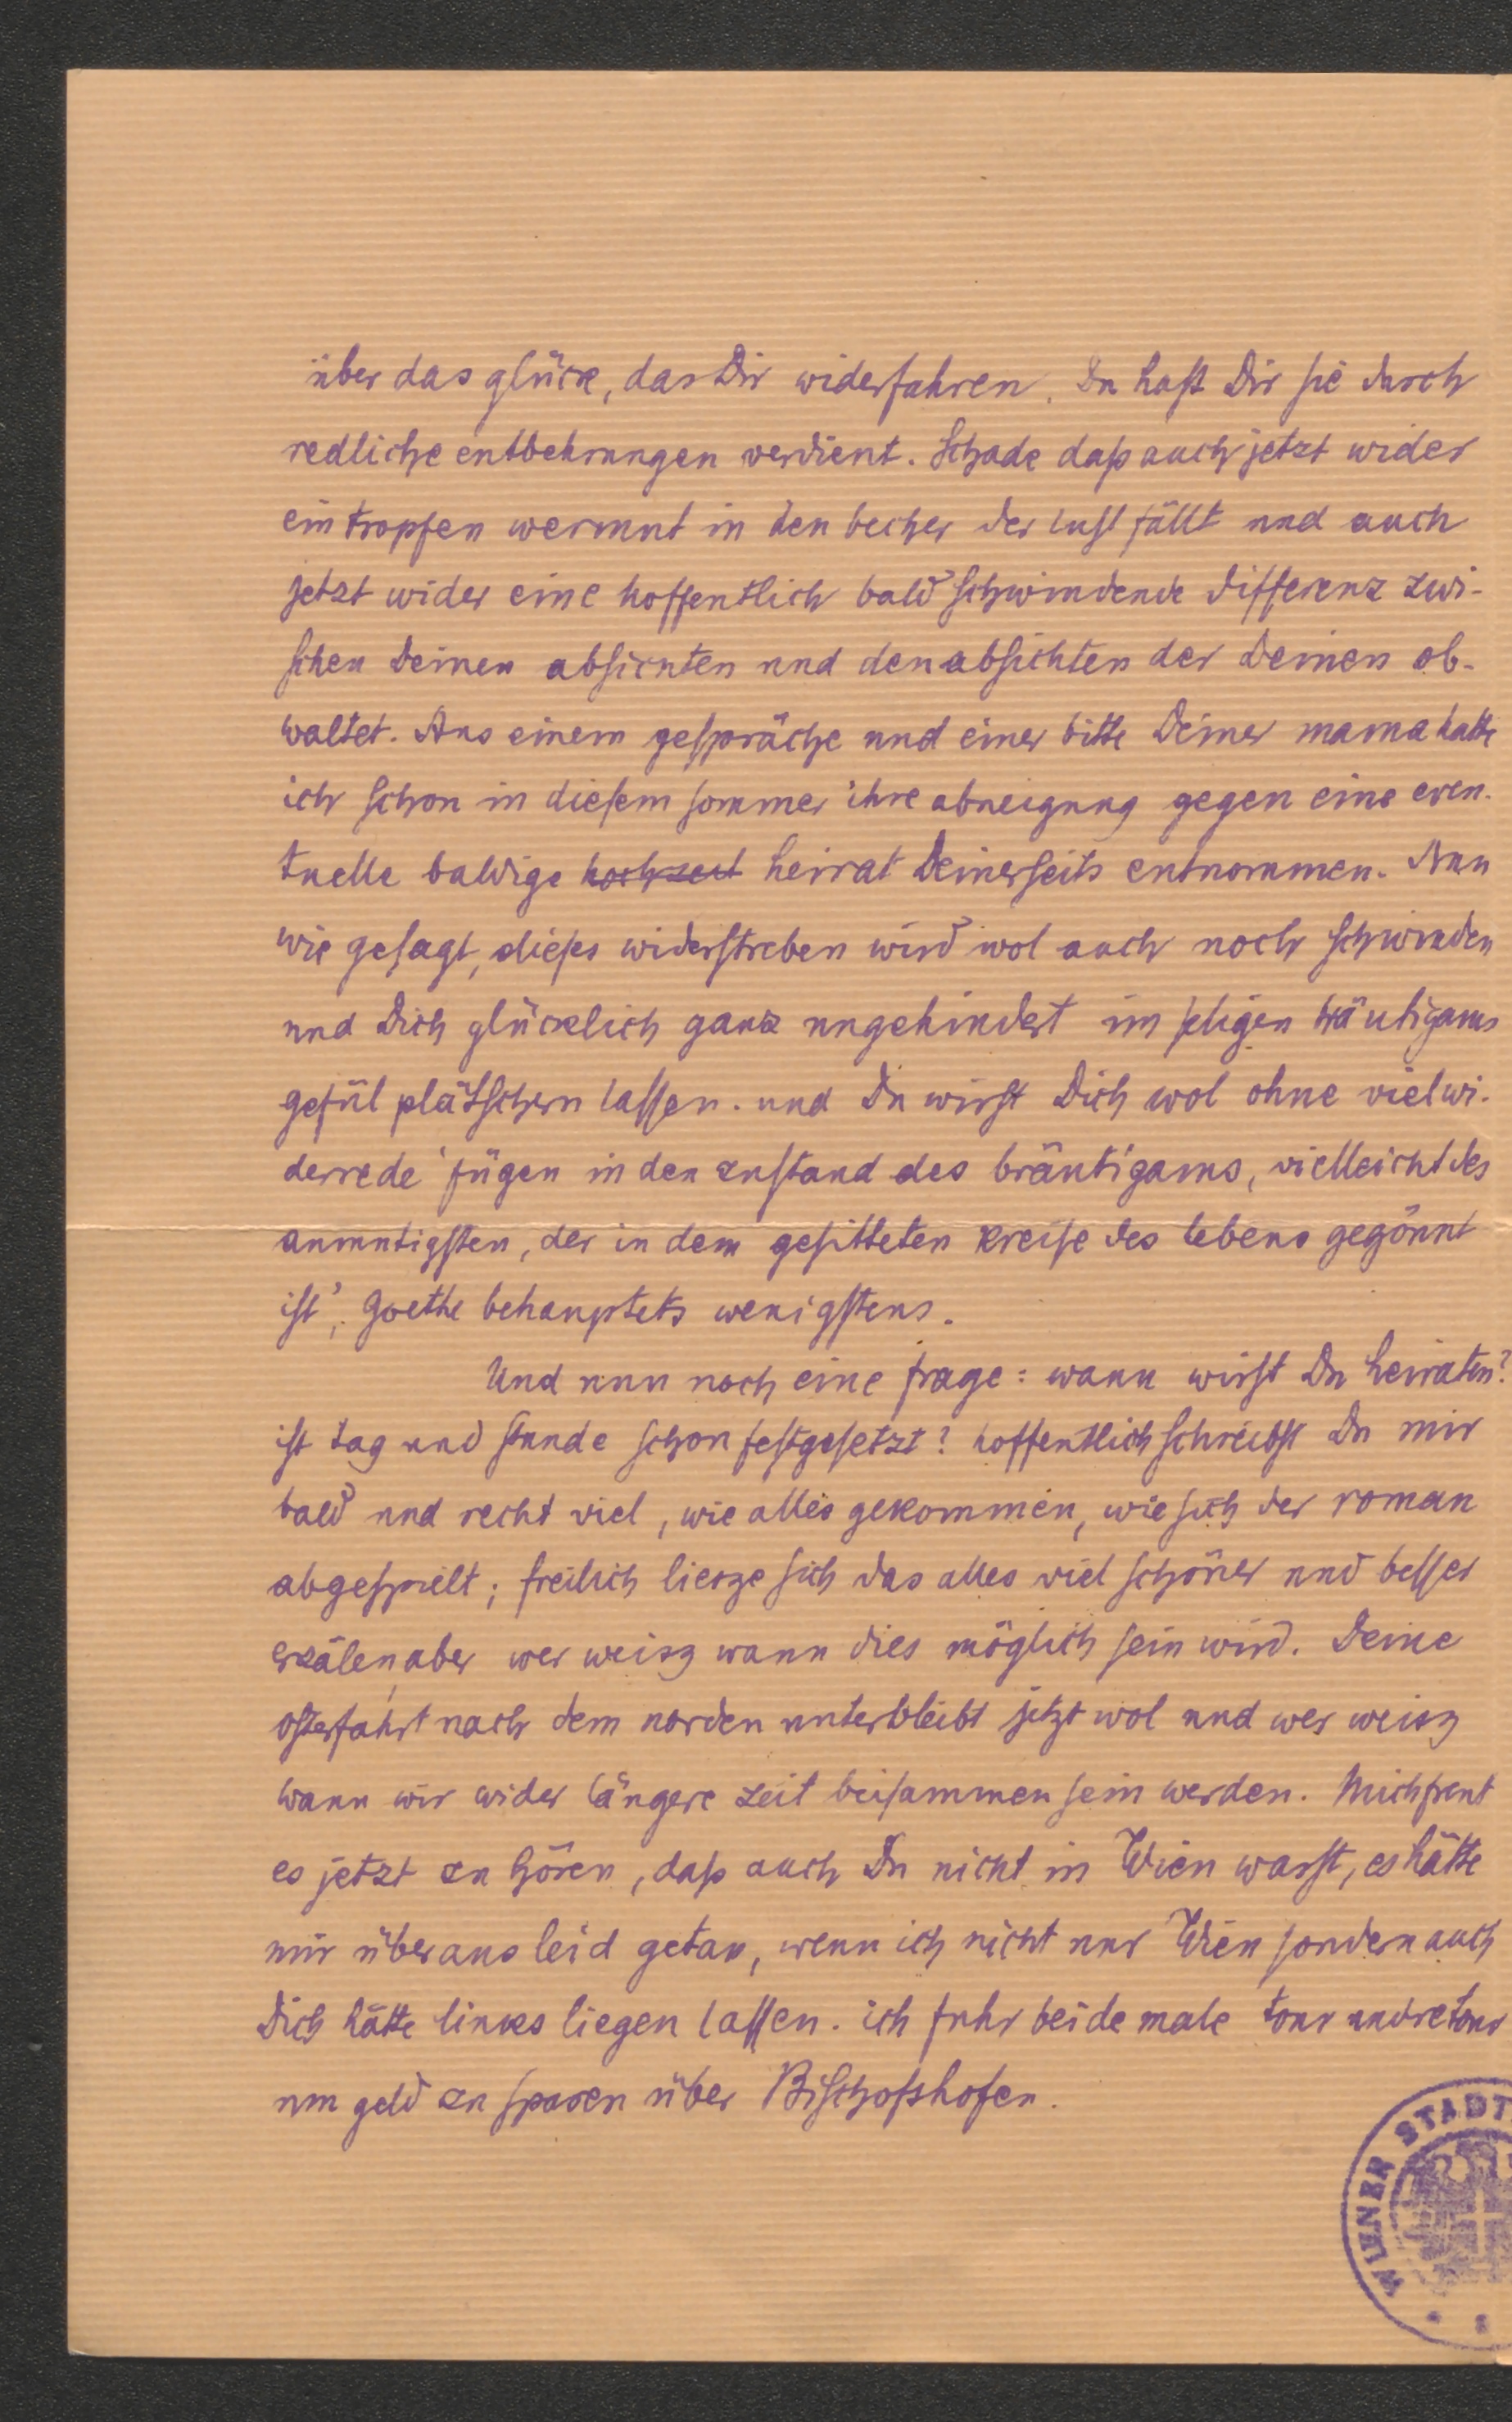 über das glück, das Dir widerfahren. Du hast Dir sie durch
redliche entbehrungen verdient. Schade daß auch jetzt wider
ein tropfen wermut in den becher der lust fällt und auch
jetzt wider eine hoffentlich bald schwindende differenz zwi-
schen Deinen absichten und den absichten der Deinen ob-
waltet. Aus einem gespräche und einer bitte Deiner mama hatte
ich schon in diesem sommer ihre abneigung gegen eine even-
tuelle baldige hochzeit heirat Deinerseits entnommen. Nun
wie gesagt, dieses widerstreben wird wol auch noch schwinden
und Dich glücklich ganz ungehindert im seligen bräutigams
gefül plätschern lassen. und Du wirst Dich wol ohne viel wi-
derrede 'fügen in den zustand des bräutigams, vielleicht des
anmutigsten, der in dem gesitteten kreise des lebens gegönnt
ist', Goethe behauptets wenigstens.
Und nun noch eine frage: wann wirst Du heiraten?
ist tag und stunde schon festgesetzt? hoffentlich schreibst Du mir
bald und recht viel, wie alles gekommen, wie sich der roman
abgespielt; freilich liesze sich das alles viel schöner und besser
erzälen, aber wer weisz wann dies möglich sein wird. Deine
osterfahrt nach dem norden unterbleibt jetzt wol und wer weisz
wann wir wider längere zeit beisammen sein werden. Mich freut
es jetzt zu hören, daß auch Du nicht in Wien warst, es hätte
mir überaus leid getan, wenn ich nicht nur Wien sondern auch
Dich hätte links liegen lassen. ich fuhr beide male tour und retour
um geld zu sparen über Bischofshofen.
WIENER STADT